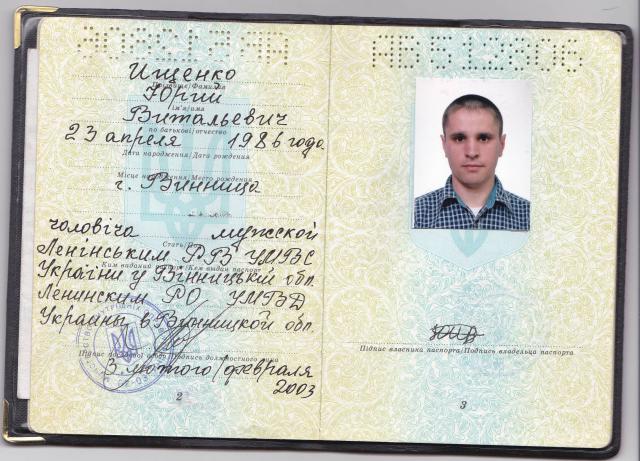 Ищенко
Прізвище/Фамилия
Юрий
ім'я/имя
Витальевич
по батькові/отчество
23 апреля 1986 года
Дата народження/Дата рождения
Місце народження/Место рождения
г. Винница
чоловіча мужской
Стать/Пол
Ленінським РВ УМВС
Ким виданий паспорт/Кем выдан паспорт
України у Вінницькій обл.
Ленинским РО УМВД
Украины в Винницкой обл.
Підпис посадової особи/Подпись должностного лица
3 лютого/февраля
2003
2
Підпис власника паспорта/Подпись владельца паспорта
3